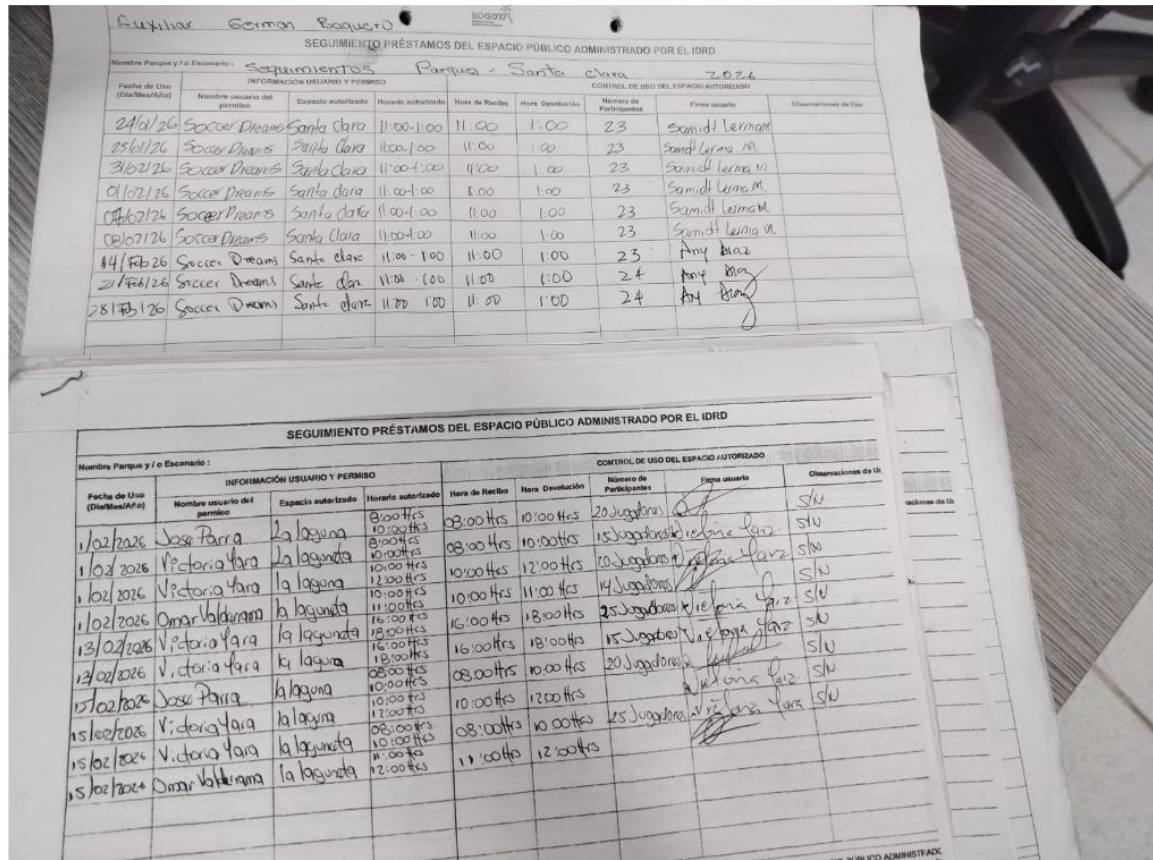 Auxiliar German Baquero
BOGOTÁ
SEGUIMIENTO PRÉSTAMOS DEL ESPACIO PÚBLICO ADMINISTRADO POR EL IDRD
Nombre Parque y / o Escenario : Seguimientos Parques - Santa clara 2026
INFORMACIÓN USUARIO Y PERMISO CONTROL DE USO DEL ESPACIO AUTORIZADO
Fecha de Uso (Dia/Mes/Año) Nombre usuario del permiso Espacio autorizado Horario autorizado Hora de Recibo Hora Devolución Número de Participantes Firma usuario Observaciones de Uso
24/01/26 Soccer Dreams Santa Clara 11:00-1:00 11:00 1:00 23 Samidt Lerma M
25/01/26 Soccer Dreams Santa Clara 11:00-1:00 11:00 1:00 23 Samidt Lerma M.
31/02/26 Soccer Dreams Santa Clara 11:00-1:00 11:00 1:00 23 Samidt Lerma M
01/02/26 Soccer Dreams Santa clara 11:00-1:00 1:00 23 Samidt Lerma M.
02/26 Soccer Dreams Santa clara 11:00-1:00 11:00 1:00 23 Samidt Lerma M.
08/02/26 Soccer Dreams Santa Clara 11:00-1:00 11:00 1:00 23 Samidt Lerma M.
14/Feb 26 Soccer Dreams Santa clara 11:00 - 1:00 11:00 1:00 23 Any Diaz
21/Feb/26 Soccer Dreams Santa clara 11:00 - 1:00 11:00 1:00 24 Any Diaz
28/Feb/26 Soccer Dreams Santa clara 11:00 1:00 11:00 1:00 24 Any Diaz
SEGUIMIENTO PRÉSTAMOS DEL ESPACIO PÚBLICO ADMINISTRADO POR EL IDRD
Nombre Parque y / o Escenario :
INFORMACIÓN USUARIO Y PERMISO CONTROL DE USO DEL ESPACIO AUTORIZADO
Fecha de Uso (Dia/Mes/Año) Nombre usuario del permiso Espacio autorizado Horario autorizado Hora de Recibo Hora Devolución Número de Participantes Firma usuario Observaciones de Us
1/02/2026 Jose Parra La laguna 8:00 Hrs 10:00 Hrs 08:00 Hrs 10:00 Hrs 20 Jugadores S/N
1/02/2026 Victoria Yara La laguneta 8:00 Hrs 10:00 Hrs 08:00 Hrs 10:00 Hrs 15 Jugadores Victoria Yara S/N
1/02/2026 Victoria Yara la laguna 10:00 Hrs 12:00 Hrs 10:00 Hrs 12:00 Hrs 20 Jugadores Victoria Yara S/N
1/02/2026 Omar Valderrama la laguneta 10:00 Hrs 11:00 Hrs 10:00 Hrs 11:00 Hrs 14 Jugadores S/N
13/02/2026 Victoria Yara la laguneta 16:00 Hrs 18:00 Hrs 16:00 Hrs 18:00 Hrs 25 Jugadores Victoria Yara S/N
13/02/2026 Victoria Yara la laguna 16:00 Hrs 18:00 Hrs 16:00 Hrs 18:00 Hrs 15 Jugadores Victoria Yara S/N
15/02/2026 Jose Parra la laguna 08:00 Hrs 10:00 Hrs 08:00 Hrs 10:00 Hrs 20 Jugadores S/N
15/02/2026 Victoria Yara la laguna 10:00 Hrs 12:00 Hrs 10:00 Hrs 1200 Hrs Victoria Yara S/N
15/02/2026 Victoria Yara la laguneta 08:00 Hrs 10:00 Hrs 08:00 Hrs 10:00 Hrs 25 Jugadores Victoria Yara S/N
15/02/2026 Omar Valderrama la laguneta 11:00 Hrs 12:00 Hrs 11:00 Hrs 12:00 Hrs